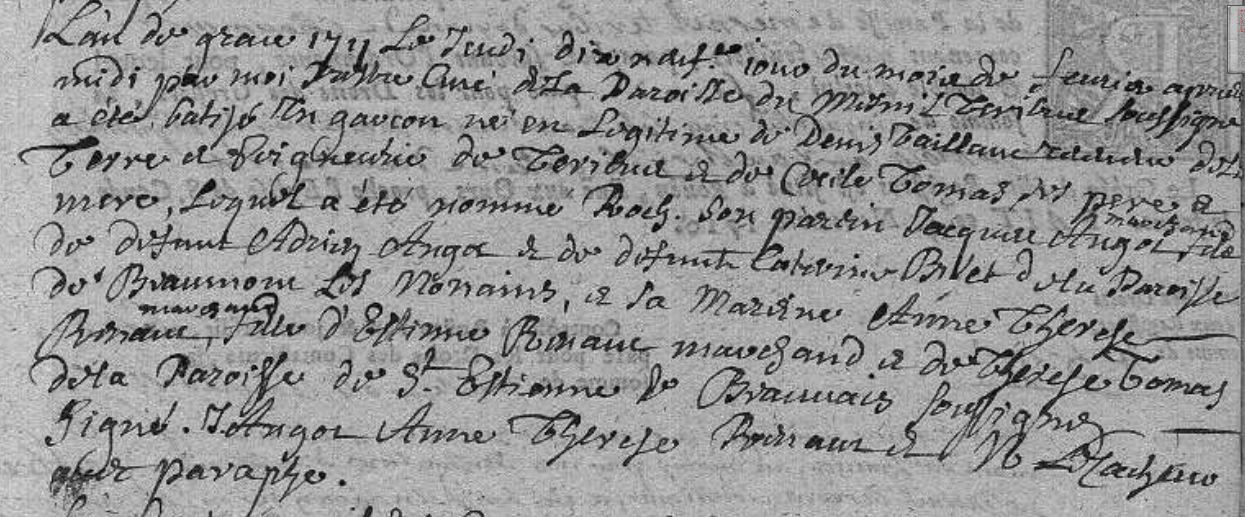 L'an de grace 1711 Le Jeudi dix neufe iour du mois de feurier apres
midi par moi Prestre Curé de la Paroisse du Mesnil Teribus soussigné
a été batisé Un garcon né en Legitime de Denis Taillant de la
Terre et Seigneurie de Teribus et de Cecile Tomas ses pere et
mere, Lequel a été nommé Roch. Son parein Jacques Angot marchand fils
de defunt Adrien Angot et de defunte Caterine Bivet de la Paroisse
de Beaumont Les Nonains, et sa Mareine Anne Therese
Renaut, fille d'Estienne Renaut marchand et de Therese Tomas
marchand
de la Paroisse de St. Estienne de Beauvais soussignes
Signé. J. Angot Anne Therese Renaut et N
avec paraphe.